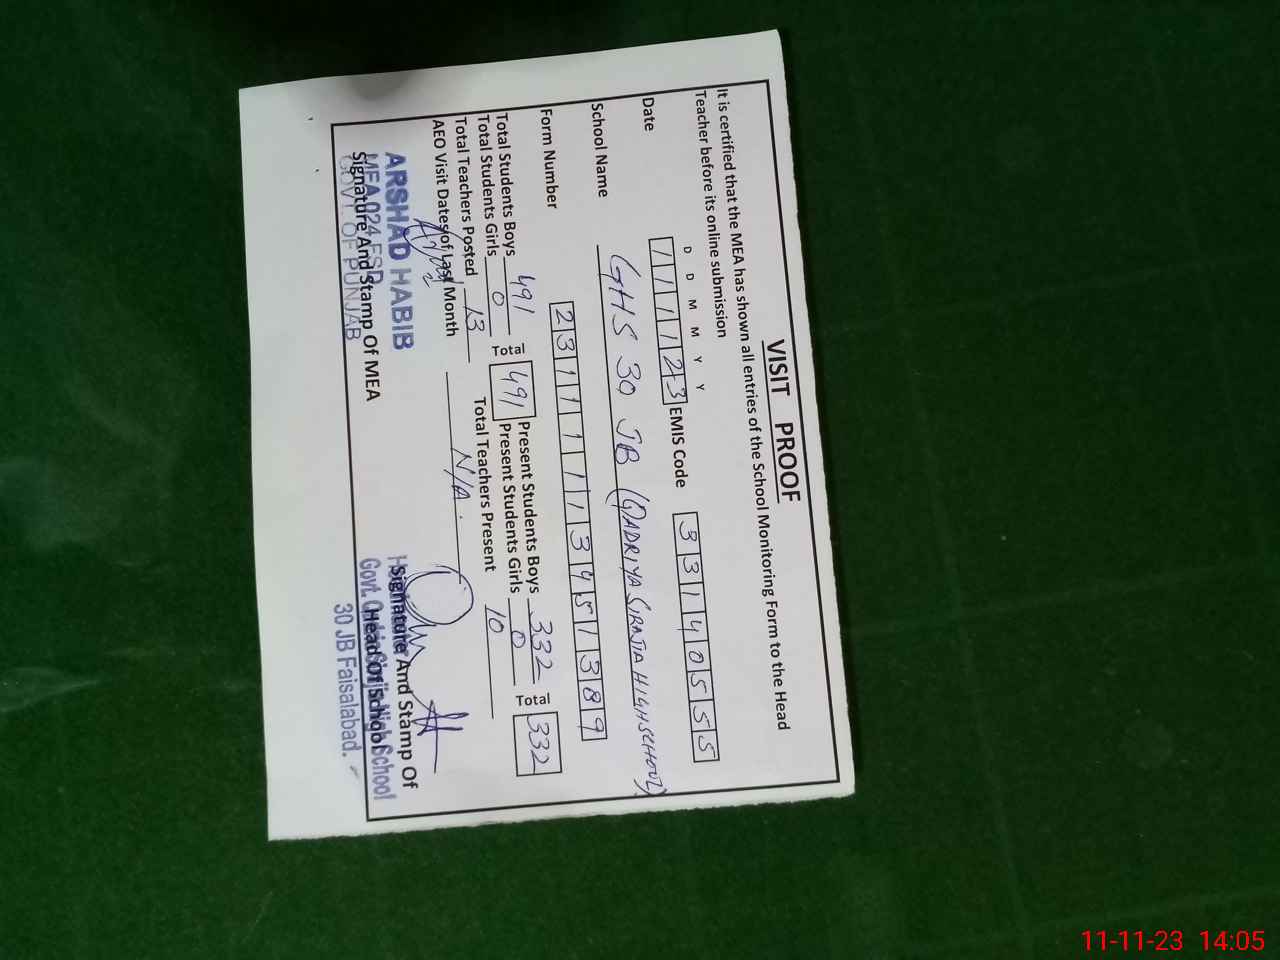 VISIT PROOF
It is certified that the MEA has shown all entries of the School Monitoring Form to the Head
Teacher before its online submission
D D M M Y Y
Date 111123 EMIS Code 33140555
School Name GHS 30 JB (QADRIYA SIRAJIA HIGH SCHOOL)
Form Number 23111113451389
Total Students Boys 491 Total 491 Present Students Boys 332 Total 332
Total Students Girls 0 Present Students Girls 0
Total Teachers Posted 13 Total Teachers Present 10
AEO Visit Dates of Last Month N/A.
ARSHAD HABIB
MEA 024 FSD
GOVT. OF PUNJAB
Signature And Stamp Of MEA
Signature And Stamp Of
Head Of School
Govt. High School
30 JB Faisalabad.
11-11-23 14:05